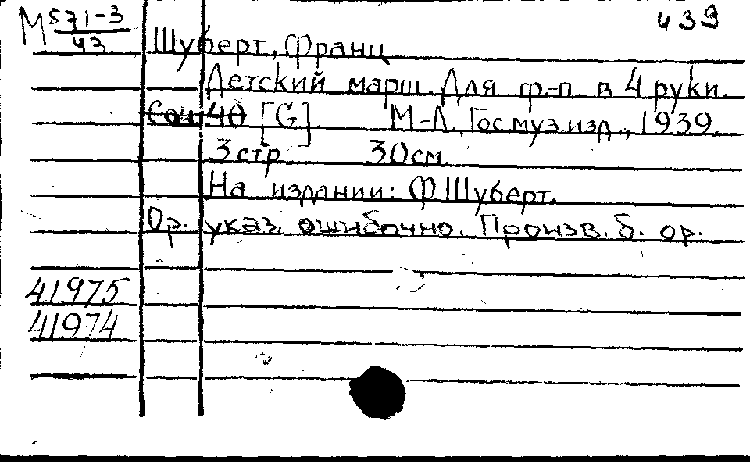 М 571-3/43
439
Шуберт, Франц
Детский марш. Для ф.-п. в 4 руки.
Соч 40 [G] М-Л., Госмузизд., 1939.
3 стр. 30см.
На издании: Ф. Шуберт.
Ор. указ. ошибочно. Произв. б. ор.
41975
41974